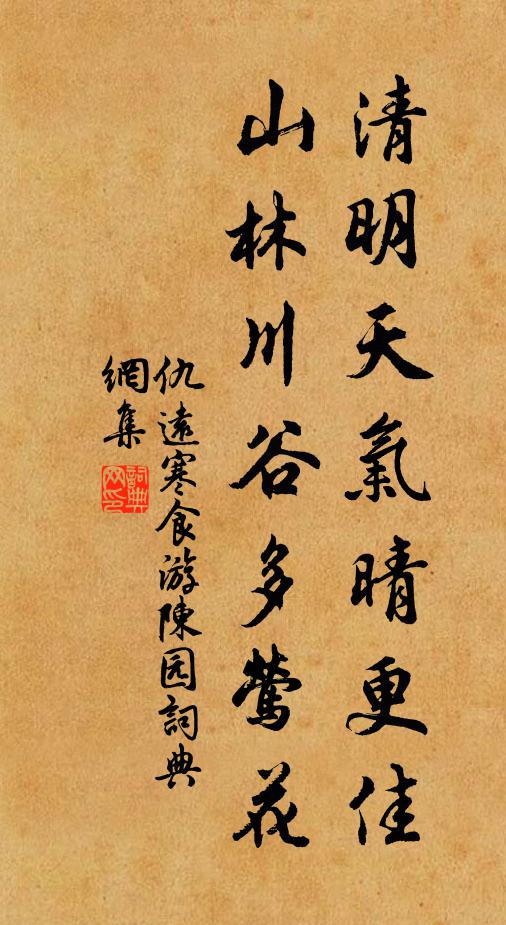 清明天氣晴更佳
山林川谷多鶯花
仇遠寒食游陳园詞典
網集
詞典網印